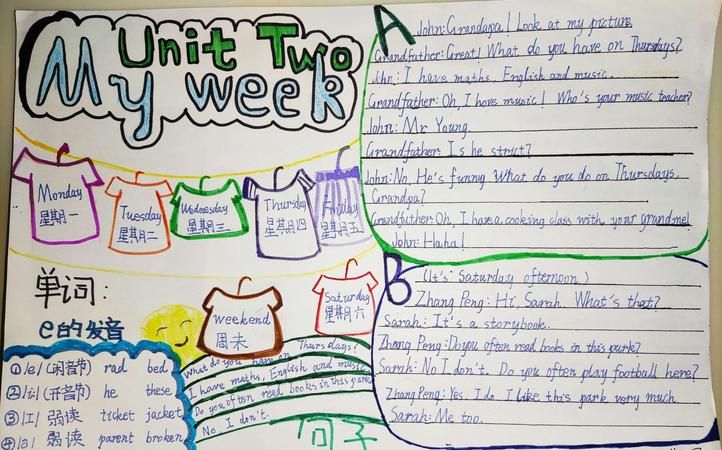 Unit Two
My week
Monday
星期一
Tuesday
星期二
Wednesday
星期三
Thursday
星期四
Friday
星期五
Saturday
星期六
weekend
周末
单词:
e的发音
①/e/ (闭音节) rad bed
②/i:/ (开音节) he these
③/I/ 弱读 ticket jacket
④/ə/ 弱读 parent broken
Thursdays?
What do you have on
I have maths, English and music
Do you often read books in this park
No, I don't.
句子
A
John: Grandapa! Look at my picture
Grandfather: Great! What do you have on Thursdays?
John: I have maths, English and music.
Grandfather: Oh, I have music! Who's your music teacher?
John: Mr Young.
Grandfather: Is he strict?
John: No, He's funny What do you do on Thursdays,
Grandpa?
Grandfather: Oh, I have a cooking class with your grandma!
John: Haha!
B
(It's Saturday afternoon.)
Zhang Peng: Hi, Sarah. What's that?
Sarah: It's a storybook.
Zhang Peng: Do you often read books in this park?
Sarah: No I don't. Do you often play football here?
Zhang Peng: Yes, I do I like this park very much.
Sarah: Me too.